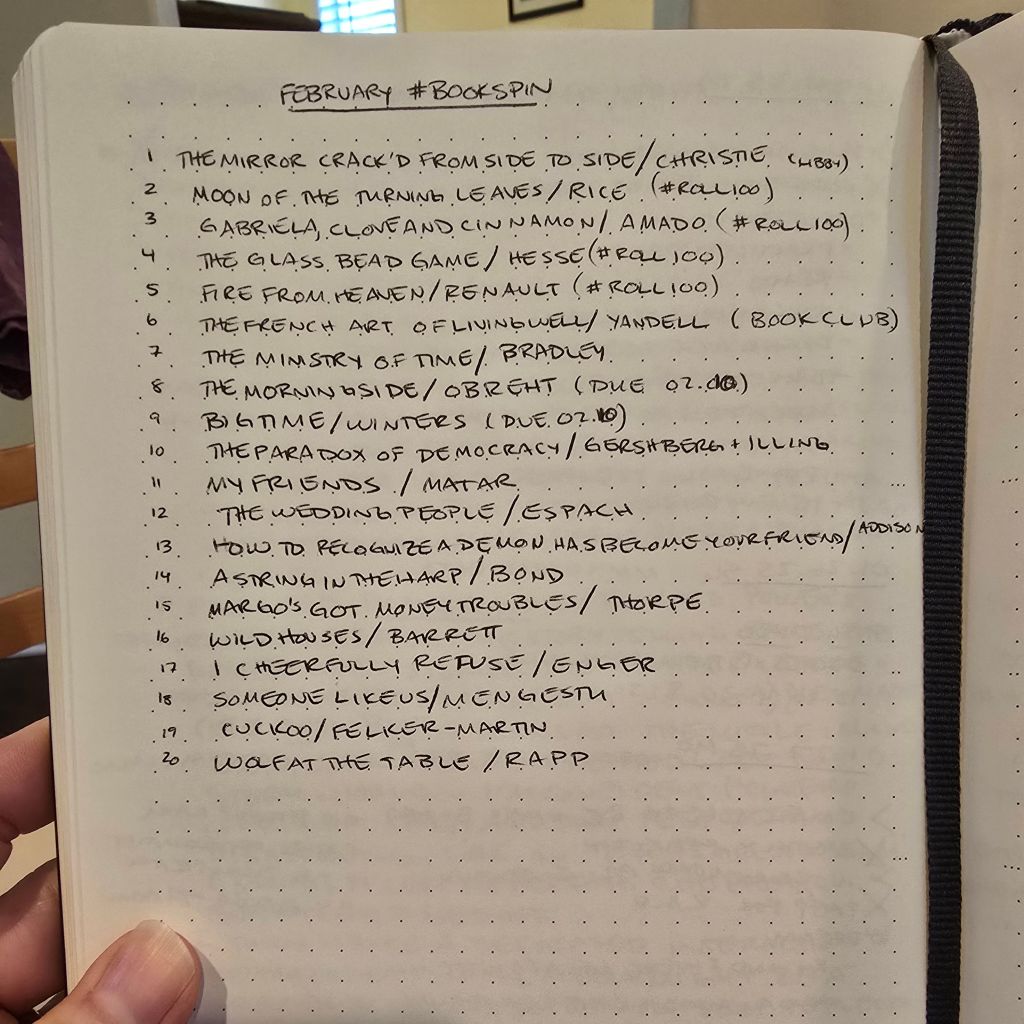 FEBRUARY #BOOKSPIN
1 THE MIRROR CRACK'D FROM SIDE TO SIDE/CHRISTIE (LIBBY)
2 MOON OF THE TURNING LEAVES/RICE (#ROLL100)
3 GABRIELA, CLOVE AND CINNAMON/AMADO (#ROLL100)
4 THE GLASS BEAD GAME/HESSE (#ROLL100)
5 FIRE FROM HEAVEN/RENAULT (#ROLL100)
6 THE FRENCH ART OF LIVING WELL/YANDELL (BOOK CLUB)
7 THE MINISTRY OF TIME/BRADLEY
8 THE MORNINGSIDE/OBREHT (DUE 02.10)
9 BIG TIME/WINTERS (DUE 02.10)
10 THE PARADOX OF DEMOCRACY/GERSHBERG + ILLING
11 MY FRIENDS/MATAR
12 THE WEDDING PEOPLE/ESPACH
13 HOW TO RECOGNIZE A DEMON HAS BECOME YOUR FRIEND/ADDISON
14 A STRING IN THE HARP/BOND
15 MARGO'S GOT MONEY TROUBLES/THORPE
16 WILD HOUSES/BARRETT
17 I CHEERFULLY REFUSE/ENGER
18 SOMEONE LIKE US/MENGESTU
19 CUCKOO/FELKER-MARTIN
20 WOLF AT THE TABLE/RAPP